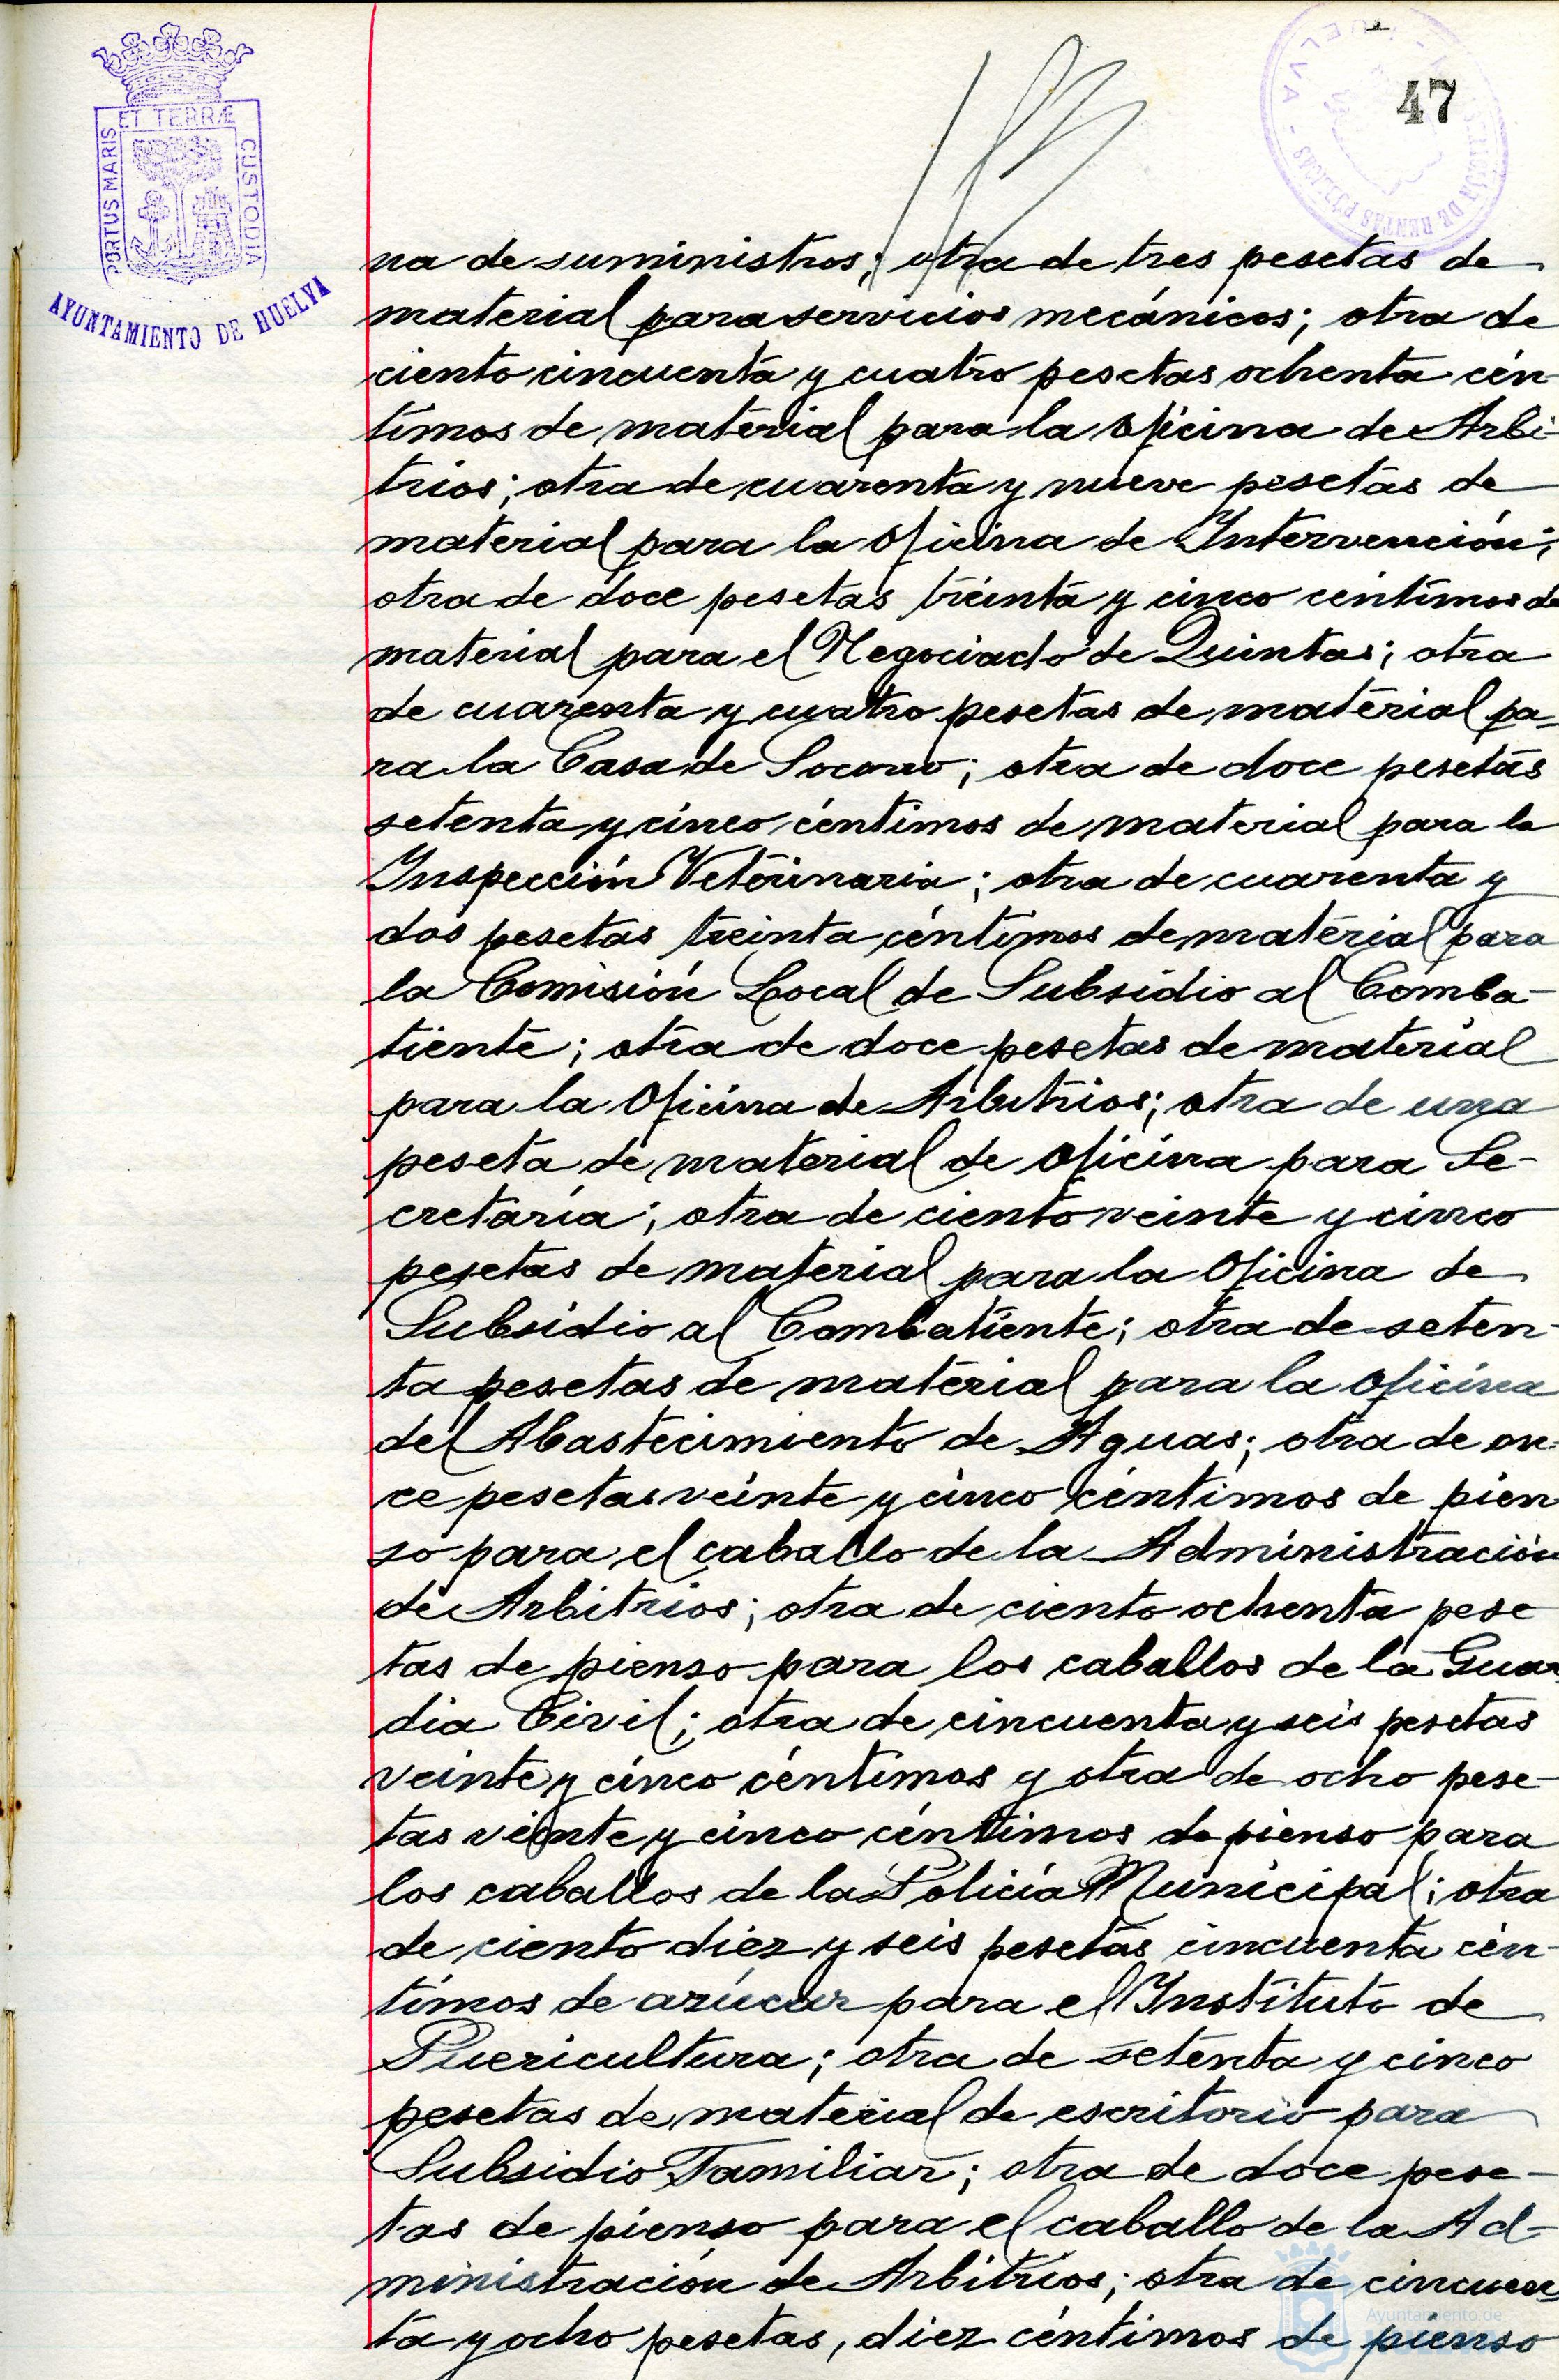 47
ET TERRÆ
PORTUS MARIS
CUSTODIA
AYUNTAMIENTO DE HUELVA
na de suministros; otra de tres pesetas de
material para servicios mecánicos; otra de
ciento cincuenta y cuatro pesetas ochenta cén-
timos de material para la oficina de Arbi-
trios; otra de cuarenta y nueve pesetas de
material para la oficina de Intervención;
otra de doce pesetas treinta y cinco centimos de
material para el Negociado de Quintas; otra
de cuarenta y cuatro pesetas de material pa-
ra la Casa de Socorro; otra de doce pesetas
setenta y cinco céntimos de material para la
Inspección Veterinaria; otra de cuarenta y
dos pesetas treinta céntimos de material para
la Comisión Local de Subsidio al Comba-
tiente; otra de doce pesetas de material
para la Oficina de Arbitrios; otra de una
peseta de material de oficina para Se-
cretaría; otra de ciento veinte y cinco
pesetas de material para la Oficina de
Subsidio al Combatiente; otra de seten-
ta pesetas de material para la oficina
del Abastecimiento de Aguas; otra de on-
ce pesetas veinte y cinco céntimos de pien
so para el caballo de la Administración
de Arbitrios; otra de ciento ochenta pese
tas de pienso para los caballos de la Guar
dia Civil; otra de cincuenta y seis pesetas
veinte y cinco céntimos y otra de ocho pese-
tas veinte y cinco céntimos de pienso para
los caballos de la Policía Municipal; otra
de ciento diez y seis pesetas cincuenta cén-
timos de azúcar para el Instituto de
Puericultura; otra de setenta y cinco
pesetas de material de escritorio para
Subsidio Familiar; otra de doce pese-
tas de pienso para el caballo de la Ad-
ministración de Arbitrios; otra de cincuen
ta y ocho pesetas, diez céntimos de pienso
Ayuntamiento de